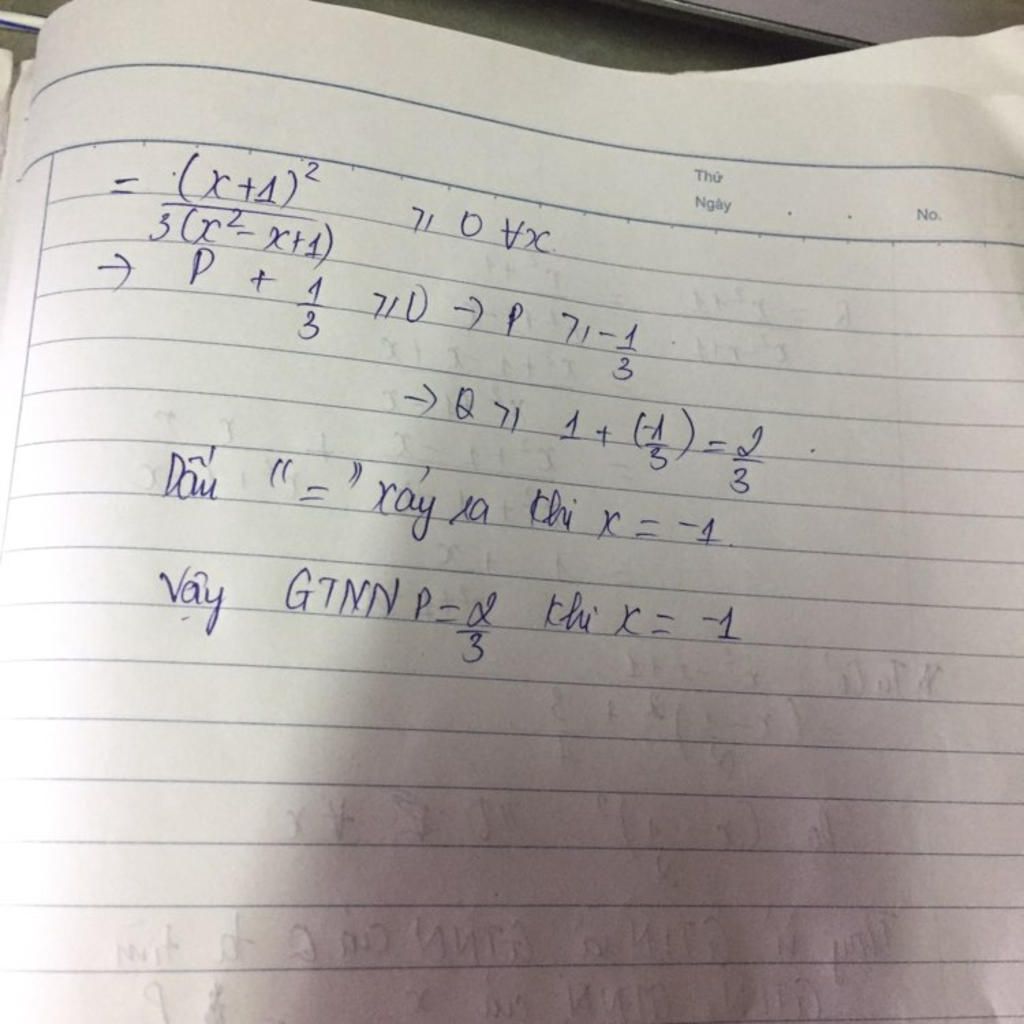 Thứ
Ngày . . No.
= (x+1)² / 3(x² - x+1) ⩾ 0 ∀x.
→ P + 1/3 ⩾ 0 → P ⩾ -1/3 .
→ Q ⩾ 1 + (-1/3) = 2/3 .
Dấu "=" xảy ra khi x = -1.
Vậy GTNN P = 2/3 khi x = -1